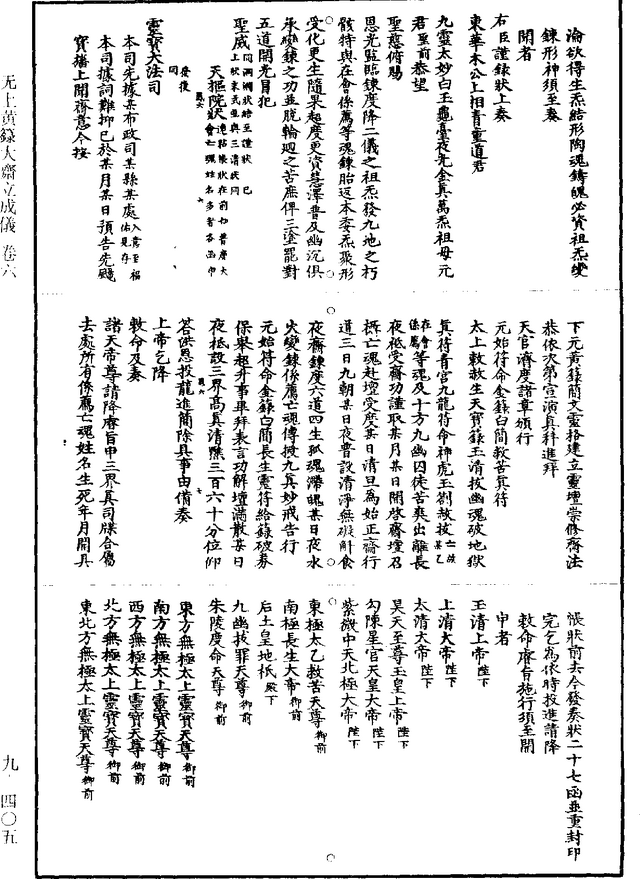 淪欲得生炁結形陶魂鑄魄必資祖炁變
鍊形神須至奏
聞者
右臣謹錄狀上奏
東華木公上相青童道君
九靈太妙白玉龜臺夜光金真萬炁祖母元
君聖前恭望
聖慈俯賜
恩光監臨鍊度降二儀之祖炁發九地之朽
骸特與在會係薦等魂鍊胎返本委炁聚形
受化更生隨果超度更資慧澤普及幽沉俱
承變鍊之功並脫輪迴之苦庶俾三塗罷對
五道開光冒犯
聖威
天樞院狀
靈寶大法司
本司先據某布政司某縣某處入意至福佑見存
本司據詞難抑已於某月某日預告先颺
寶旛上聞齋意今按
下元黃籙簡文靈格建立靈壇崇修齋法
恭依次第宣演真科進拜
天官濟度諸章頒行
元始符命金籙白簡救苦真符
太上敕救生天寶籙玉清拔幽魂破地獄
真符青宮九龍符命神虎玉劄救拔
在會係薦等魂及十方九幽囚徒苦爽出離長
夜祗受齋功謹取某月某日開啓齋壇召
攝亡魂赴壇受度某日清旦為始正齋行
道三日九朝某日夜普設清淨無礙斛食
夜齋鍊度六道四生孤魂滯魄某日夜水
火變鍊係薦亡魂傳授九真妙戒告行
元始符命金籙白簡長生靈符給籙破券
保舉超升事畢拜表言功解壇滿散某日
夜祗設三界高真清醮三百六十分位仰
答洪恩投龍進簡除具事由備奏
上帝乞降
敕命及奏
諸天帝尊請降齋旨申三界真司牒合屬
去處所有係薦亡魂姓名生死年月開具
帳狀前去今發奏狀二十七函並重封印
完乞為依時投進請降
敕命齋旨施行須至關
申者
玉清上帝陛下
上清大帝陛下
太清大帝陛下
昊天至尊玉皇上帝陛下
勾陳星宮天皇大帝陛下
紫微中天北極大帝陛下
東極太乙救苦天尊御前
南極長生大帝御前
后土皇地祇殿下
九幽拔罪天尊御前
朱陵度命天尊御前
東方無極太上靈寶天尊御前
南方無極太上靈寶天尊御前
西方無極太上靈寶天尊御前
北方無極太上靈寶天尊御前
東北方無極太上靈寶天尊御前
无上黃籙大齋立成儀 卷六
九 四〇五